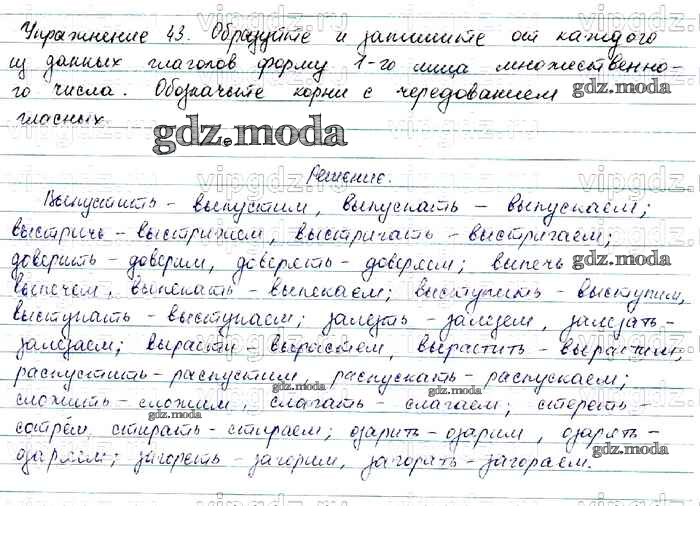 Упражнение 43. Образуйте и запишите от каждого
из данных глаголов форму 1-го лица множественно-
го числа. Обозначьте корни с чередованием gdz.moda
гласных.
gdz.moda
Решение.
Выпустить - выпустим, выпускать - выпускаем;
выстричь - выстрижем, выстригать - выстригаем;
доверить - доверим, доверять - доверяем; выпечь
gdz.moda
выпечем, выпекать - выпекаем; выступить - выступим,
выступать - выступаем; залезть - залезем, залезать -
залезаем; вырасти вырастем, вырастить - вырастим;
распустить - распустим распускать - распускаем;
gdz.moda
сложить - сложим, слагать - слагаем; стереть -
gdz.moda
gdz.moda
сотрём, стирать - стираем; озарить - озарим, озарять -
озаряем; загореть - загорим, загорать - загораем.
gdz.moda